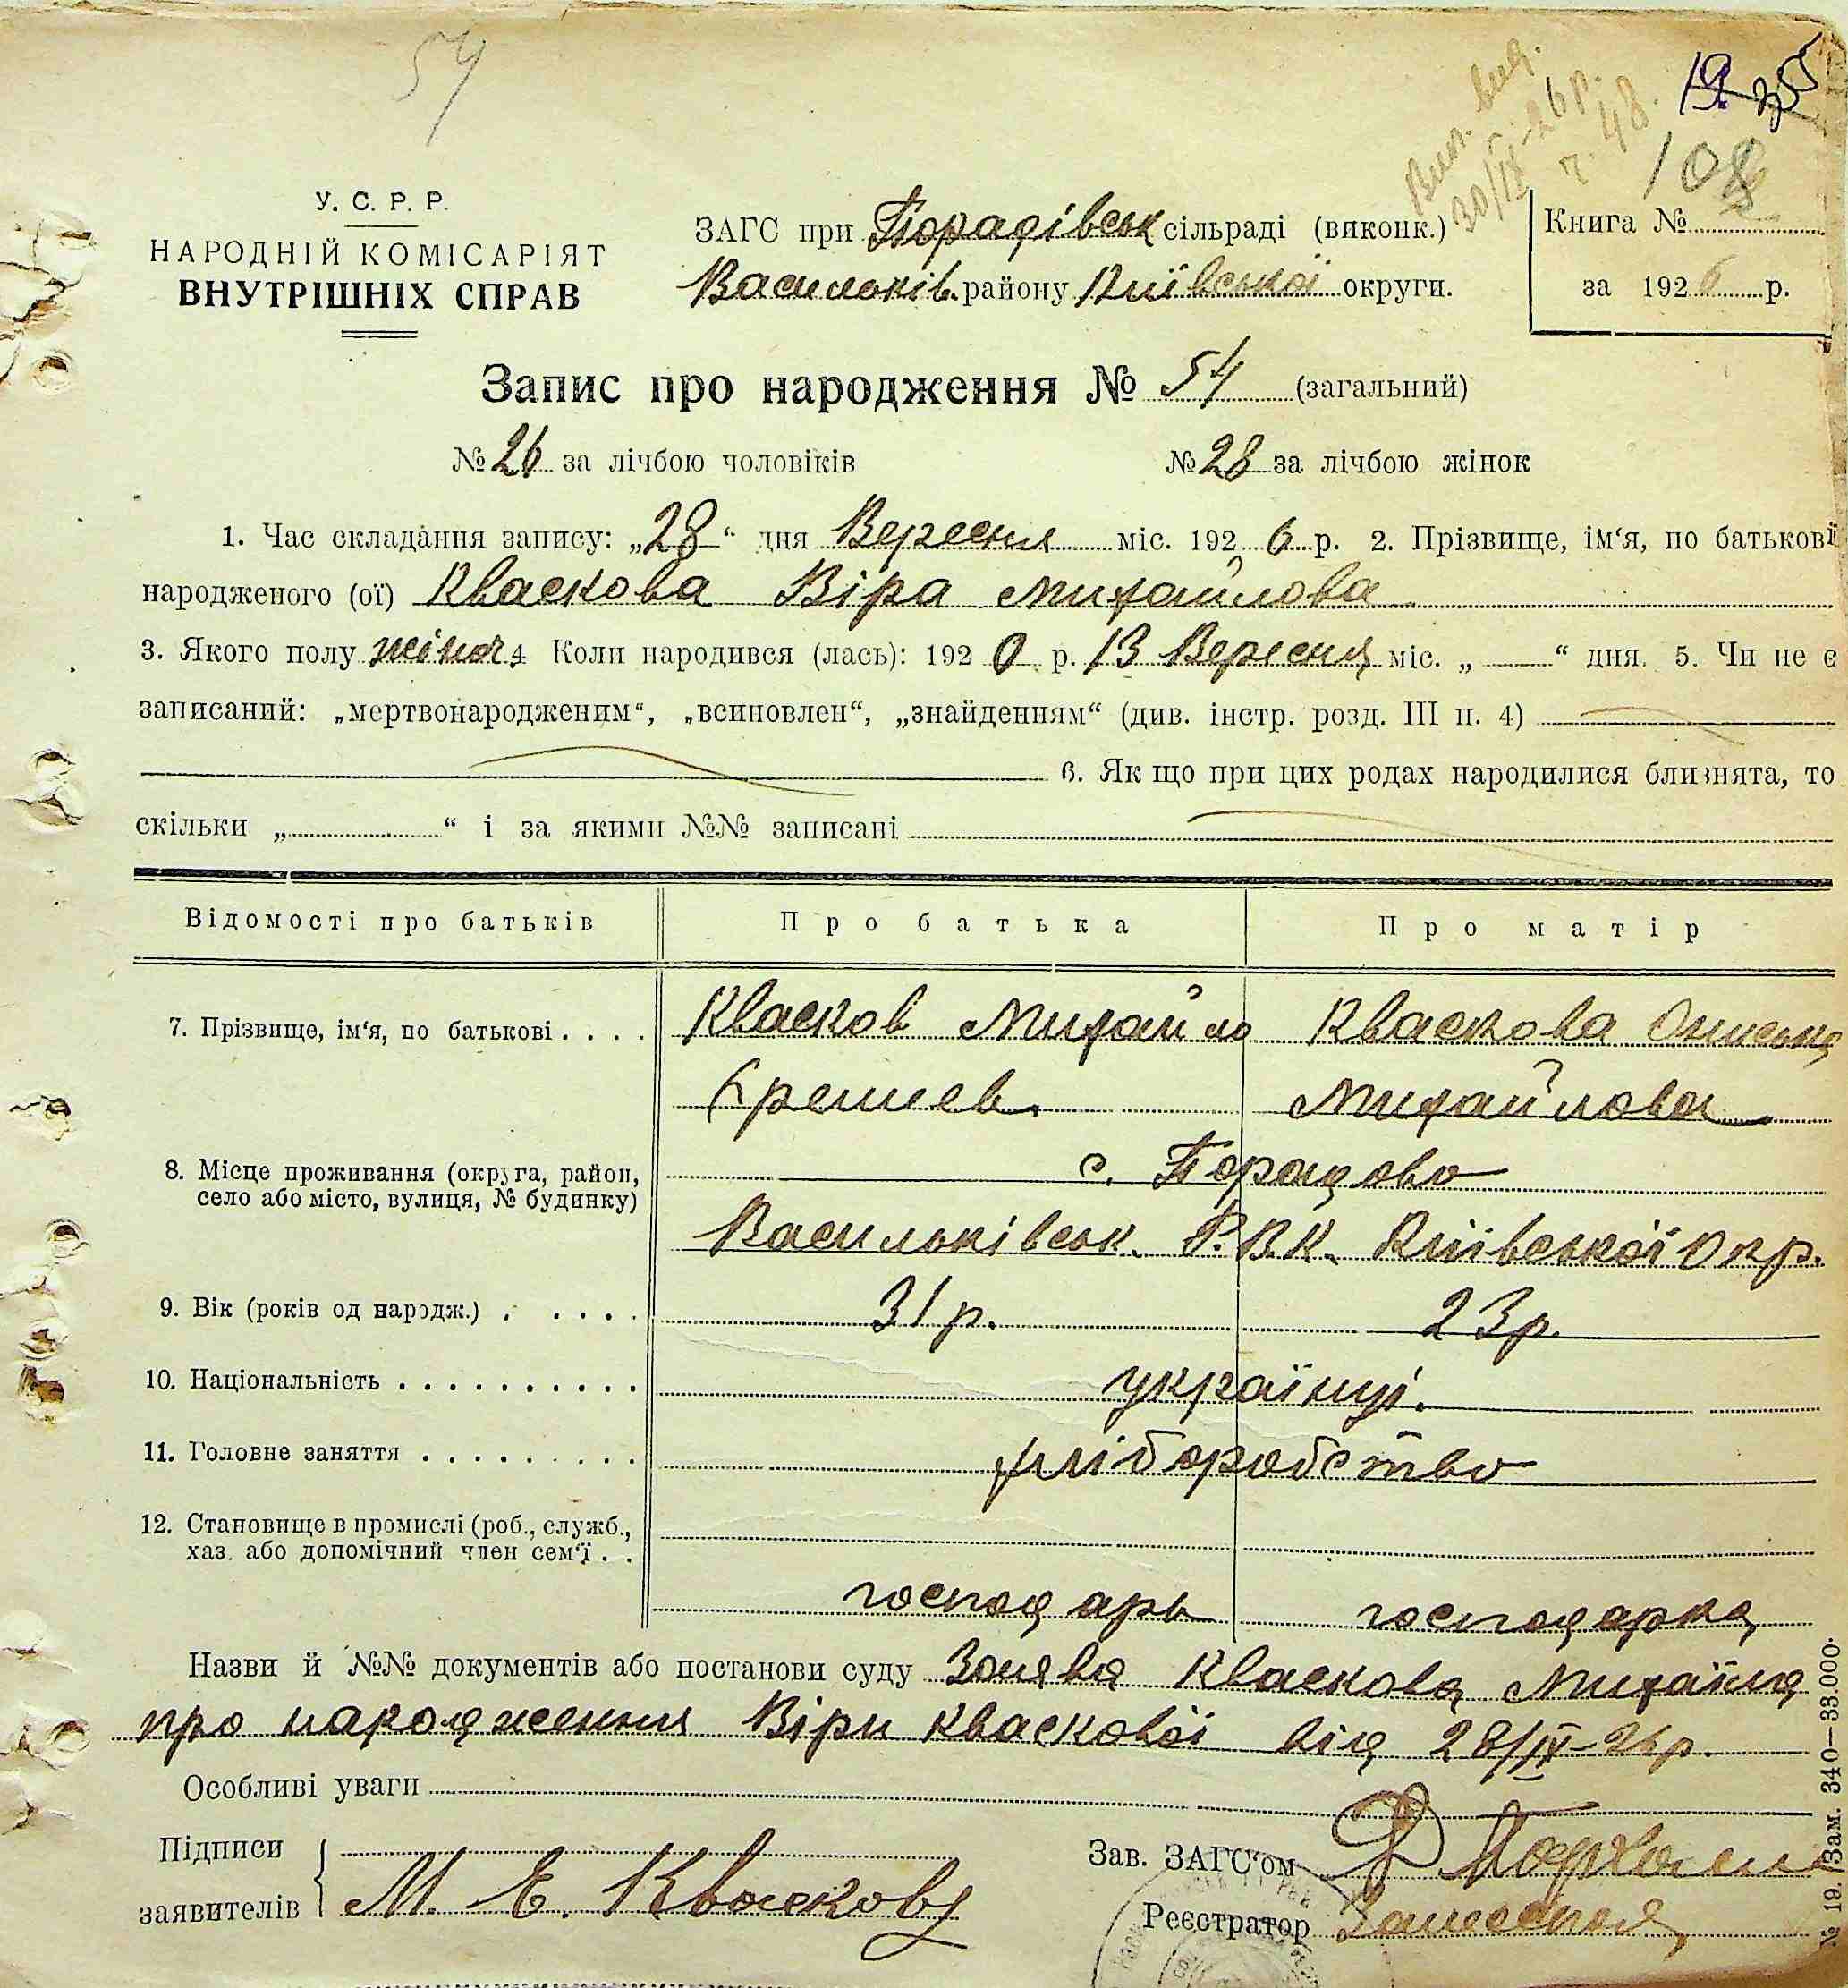 54
Вип. вид.
30/IX-26 р.
ч. 48.
108
У. С. Р. Р.
НАРОДНІЙ КОМІСАРІЯТ
ВНУТРІШНІХ СПРАВ
ЗАГС при Порадівськ сільраді (виконк.)
Васильків. району Київської округи.
Книга №
за 1926 р.
Запис про народження № 54 (загальний)
№ 26 за лічбою чоловіків № 28 за лічбою жінок
1. Час складання запису: „28“ дня Вересня міс. 1926 р. 2. Прізвище, ім‘я, по батькові
народженого (ої) Кваскова Віра Михайлова
3. Якого полу жіноч. 4 Коли народився (лась): 1920 р. 13 Вересня міс. „ “ дня. 5. Чи не є
записаний: „мертвонародженим“, „всиновлен“, „знайденням“ (див. інстр. розд. III п. 4)
6. Як що при цих родах народилися близнята, то
скільки „ “ і за якими №№ записані
Відомості про батьків Про батька Про матір
7. Прізвище, ім‘я, по батькові . . . . Квасков Михайло Кваскова Ониська
Михайлова
8. Місце проживання (округа, район, с. Порадово
село або місто, вулиця, № будинку)
Васильківськ. Р.В.К. Київської Окр.
9. Вік (років од народж.) . . . . . 31 р. 23 р.
10. Національність . . . . . . . . . . українці.
11. Головне заняття . . . . . . . . . хліборобство
12. Становище в промислі (роб., служб.,
хаз. або допомічний член сем‘ї . .
господарь господарка
Назви й №№ документів або постанови суду Заява Кваскова Михаїла
про народження Віри Кваскової від 28/IX-26 р.
Особливі уваги
Підписи
заявителів М. Е. Квасков
Зав. ЗАГС‘ом
Реєстратор
№ 19. Зам. 340—33.000.